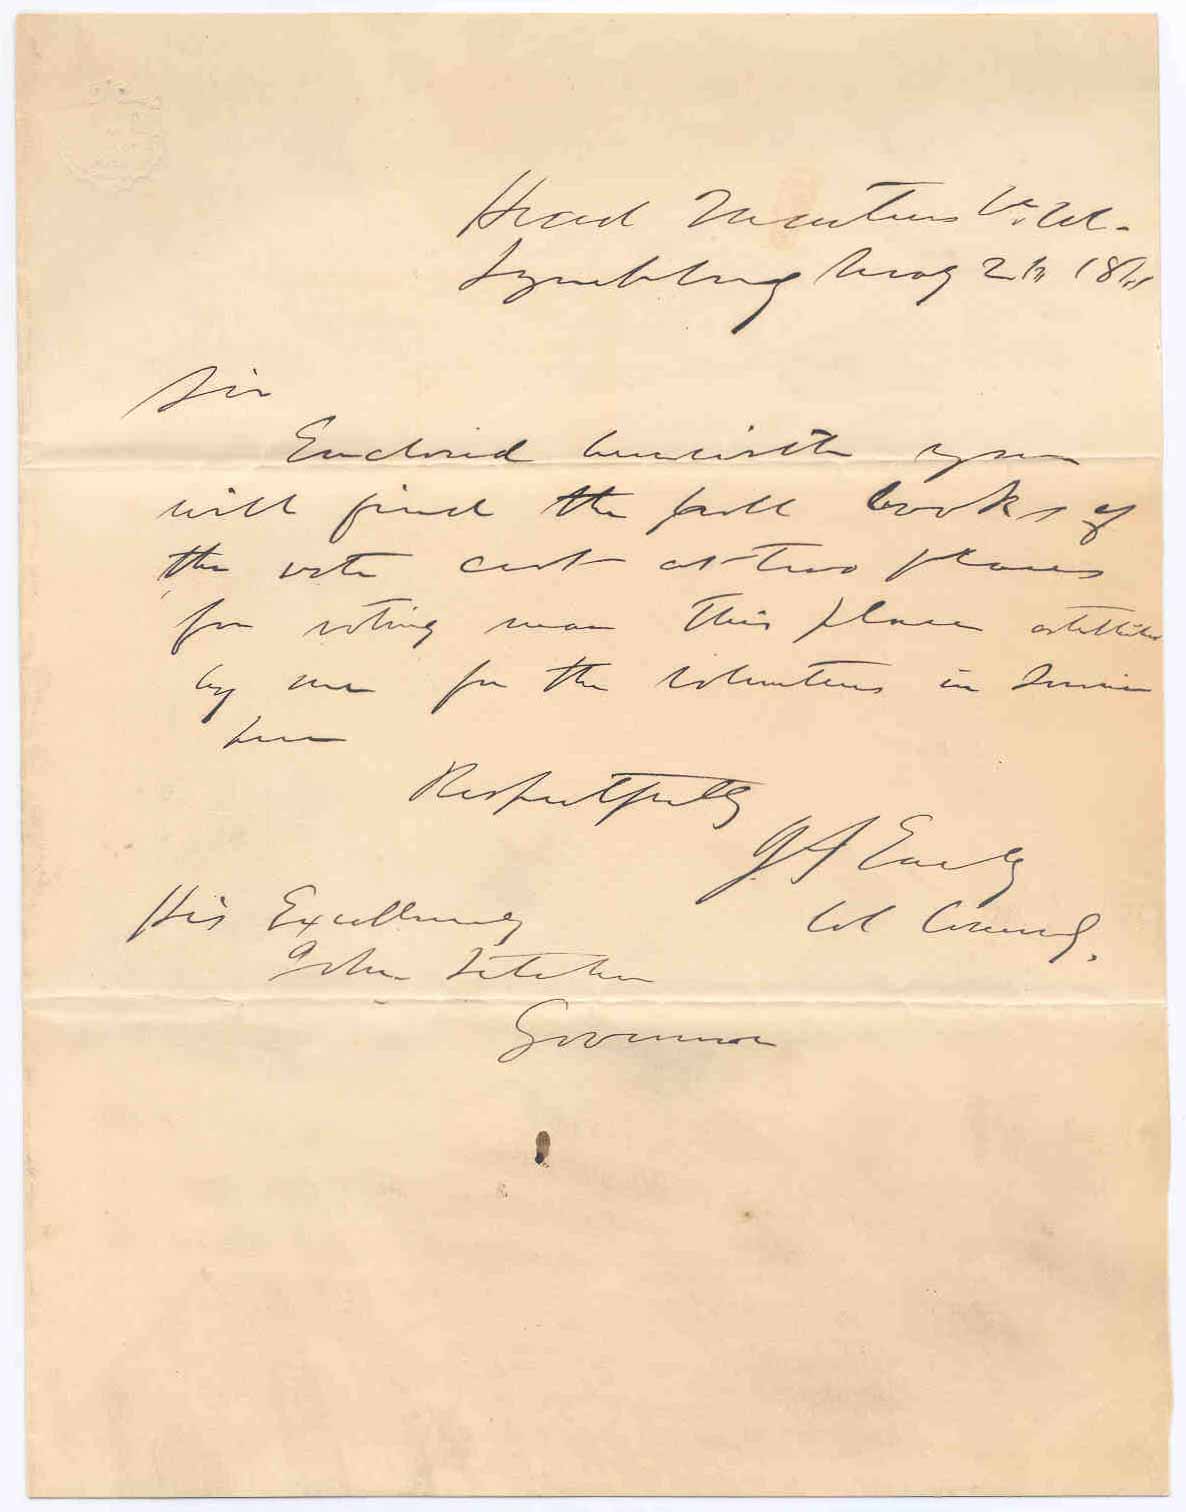 Head Quarters Va. Vol.
Lynchburg May 1861
Sir
Enclosed herewith you
will find the poll books of
the vote cast at two places
for voting near this place established
by me for the volunteers in service
here
Respectfully
J. A. Early
Col Commd.
His Excellency
John Letcher
Governor